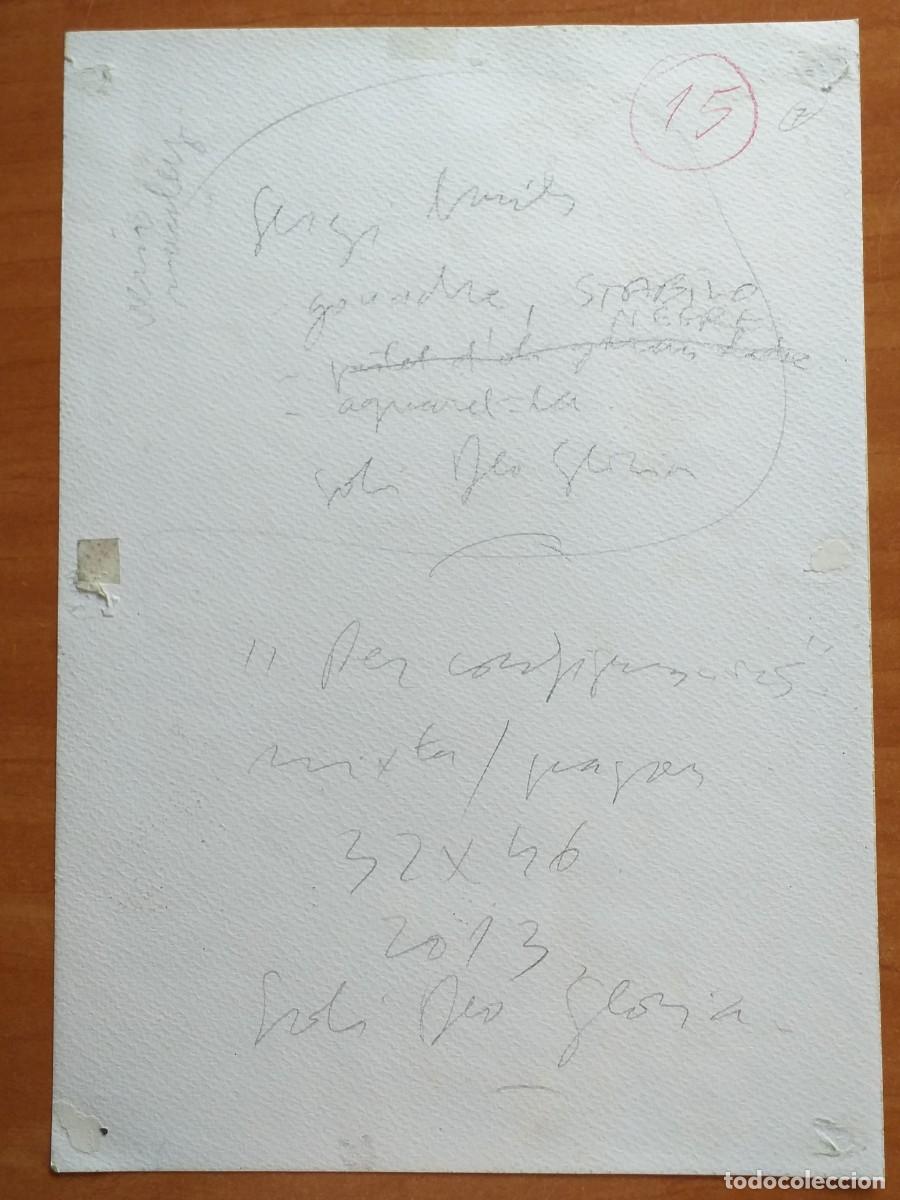 15
Sergi
- gouache, STABILO
NEGRE
- pastel d'oli
- aquarel·la
Soli Deo Gloria
"Per configuració"
mixta / paper
32 x 46
2013
Soli Deo Gloria
todocoleccion